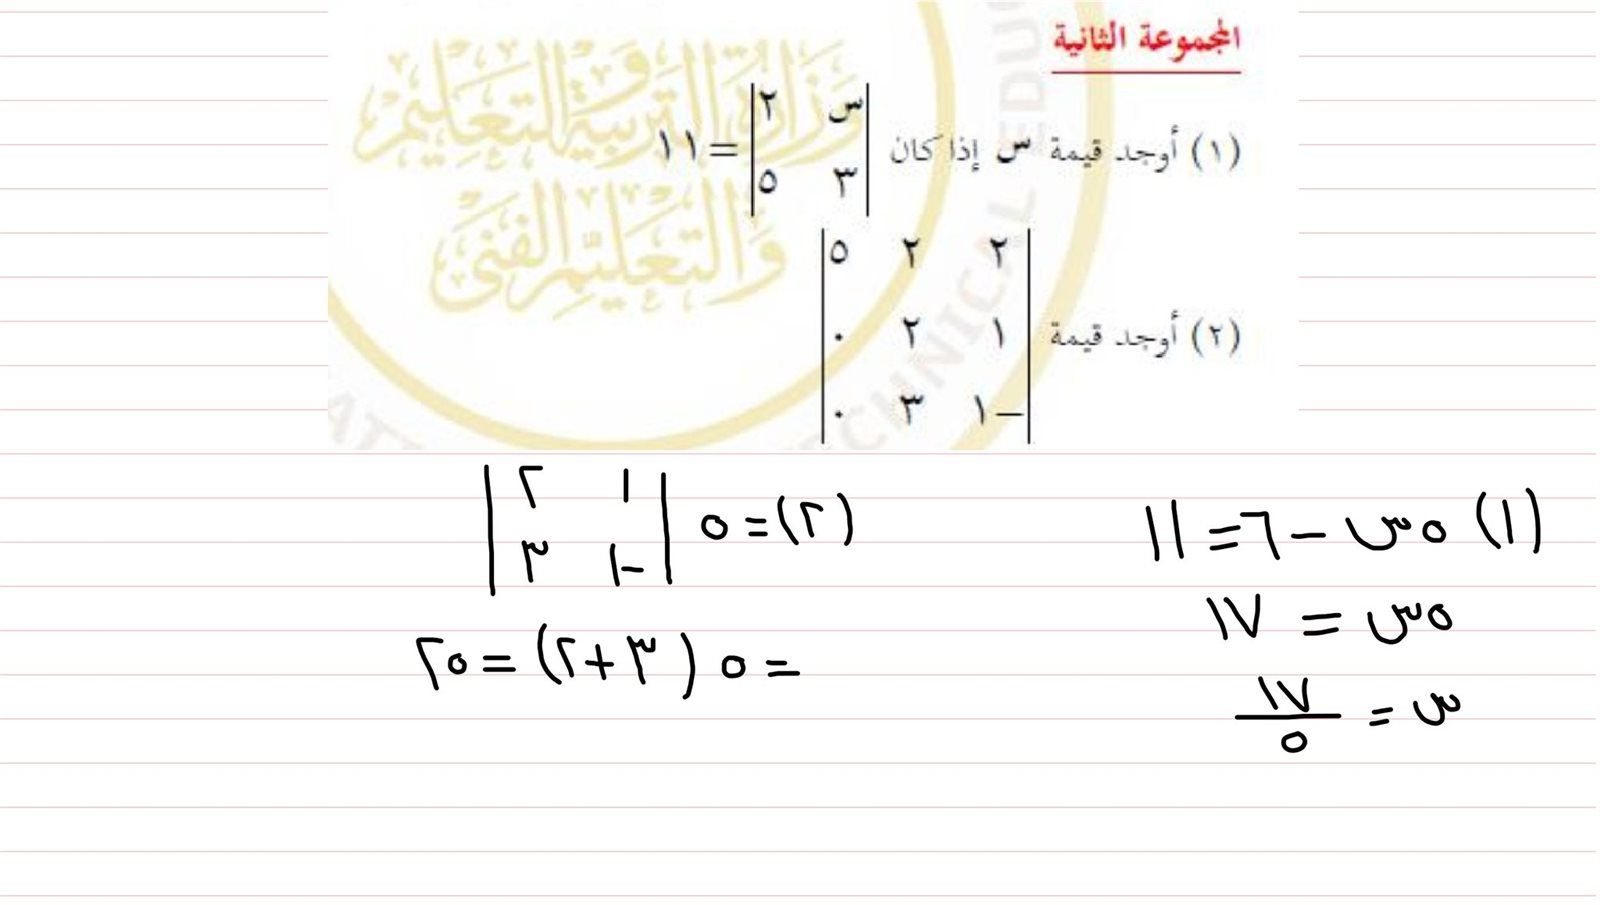 المجموعة الثانية
(١) أوجد قيمة س إذا كان | س ٢ | = ١١
| ٣ ٥ |
| ٢ ٢ ٥ |
(٢) أوجد قيمة | ١ ٢ ٠ |
| -١ ٣ ٠ |
وزارة التربية والتعليم
والتعليم الفنى
TECHNICAL EDU
(١) ٥س - ٦ = ١١
٥س = ١٧
س = ١٧/٥
(٢) = ٥ | ١ ٢ |
| -١ ٣ |
= ٥ (٣ + ٢) = ٢٥